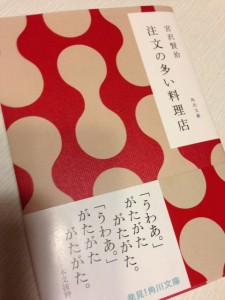 宮沢賢治
注文の多い料理店
角川文庫
「うわあ。」
がたがた
がたがた。
「うわあ。」
がたがた
がたがた。
本文抜粋
発見!角川文庫